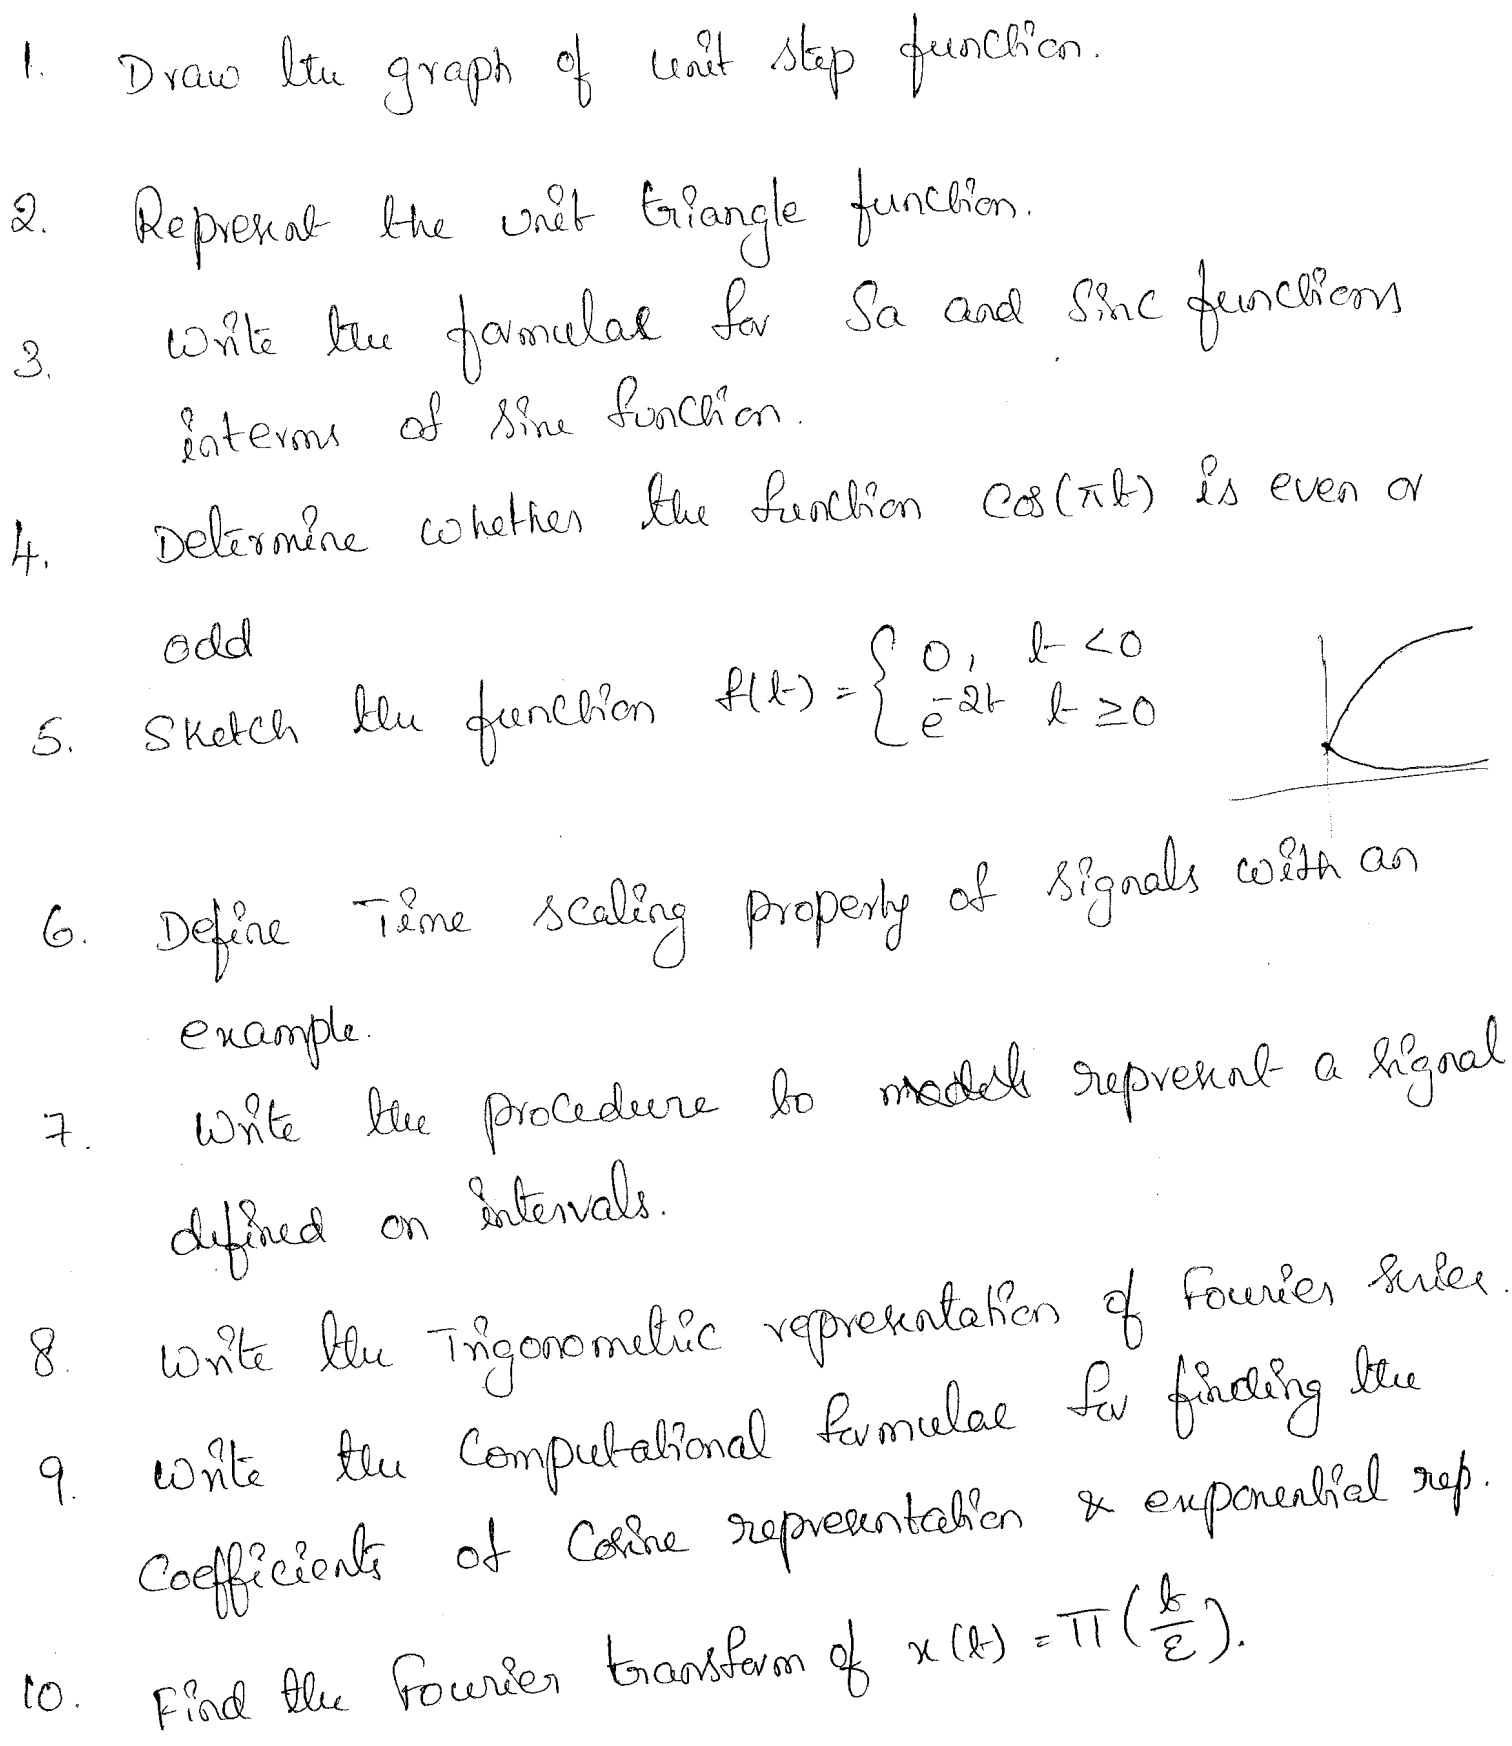 1. Draw the graph of unit step function.
2. Represent the unit triangle function.
3. Write the formulae for Sa and Sinc functions
interms of sine function.
4. Determine whether the function cos(πt) is even or
odd
5. Sketch the function f(t) = { 0, t < 0
e^{-2t} t ≥ 0
6. Define Time scaling property of signals with an
example.
7. Write the procedure to represent a signal
defined on intervals.
8. Write the Trigonometric representation of Fourier Series.
9. Write the Computational formulae for finding the
Coefficients of Cosine representation & exponential rep.
10. Find the Fourier transform of x(t) = Π(t/ε).